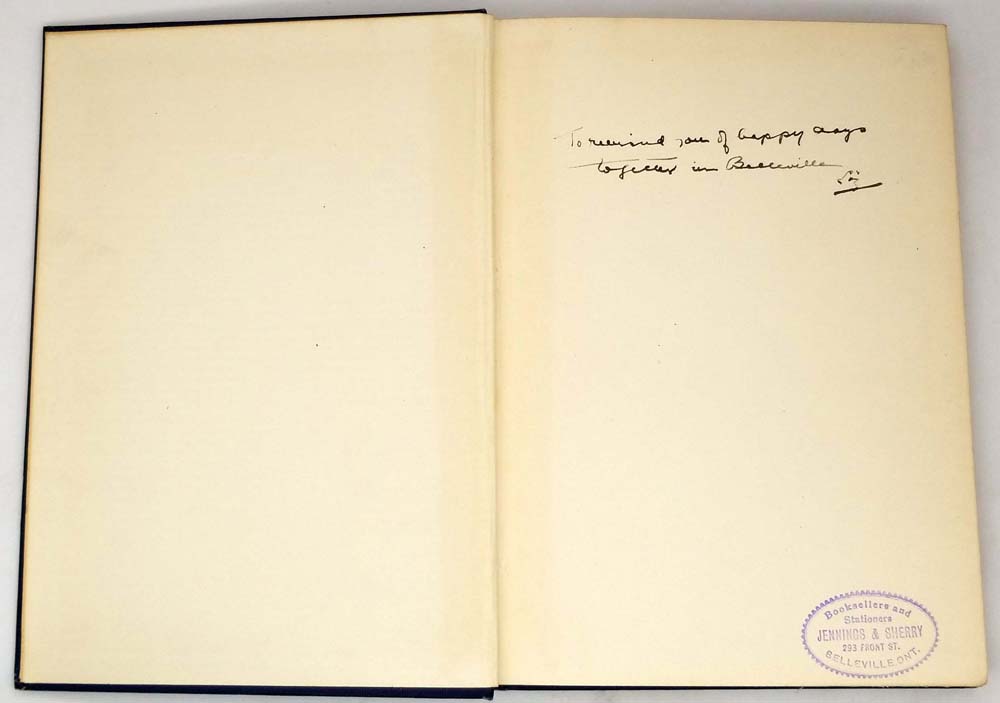 To remind you of happy days
together in Belleville
Booksellers and
Stationers
JENNINGS & SHERRY
293 FRONT ST.
BELLEVILLE, ONT.